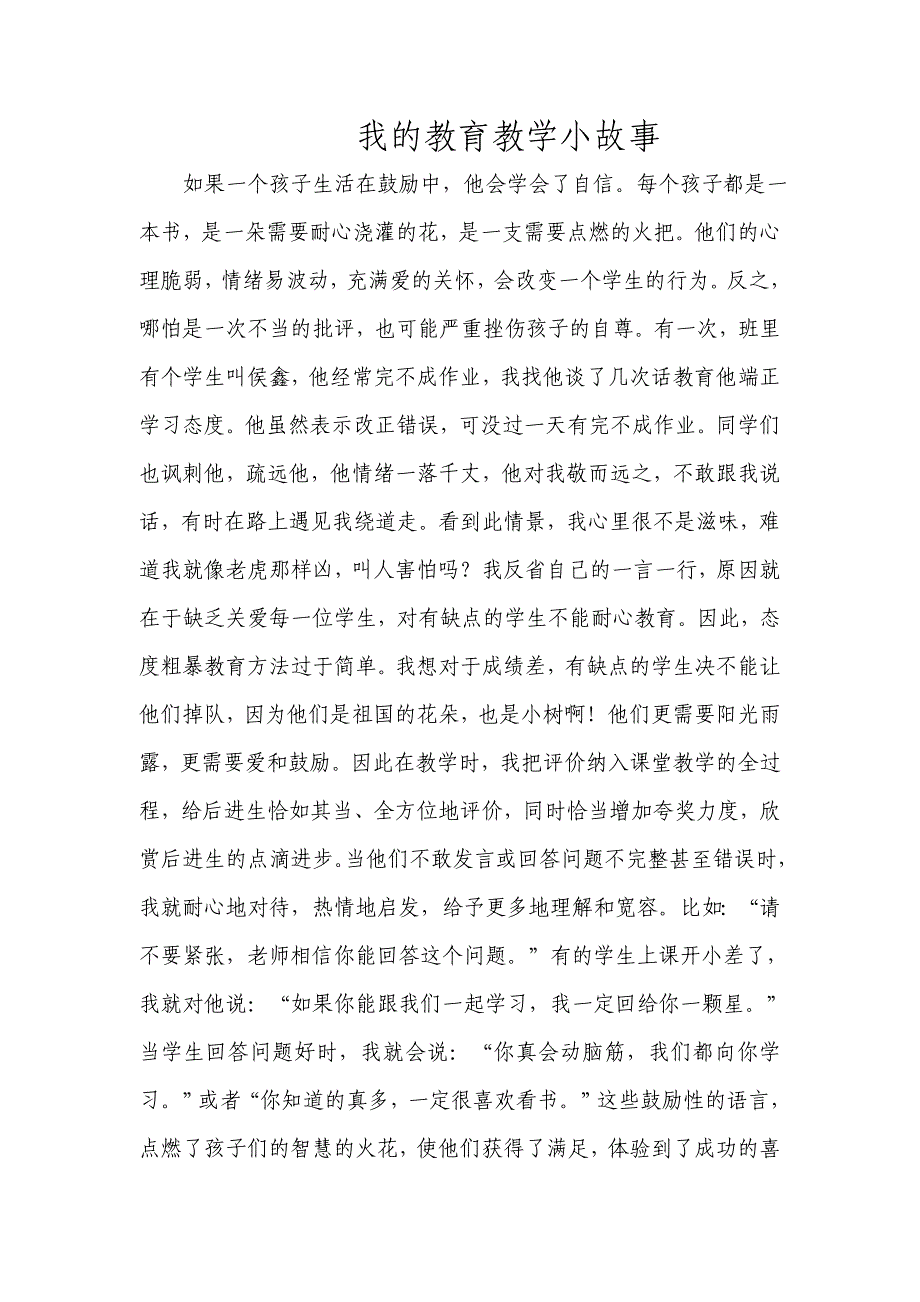 我的教育教学小故事
如果一个孩子生活在鼓励中，他会学会了自信。每个孩子都是一
本书，是一朵需要耐心浇灌的花，是一支需要点燃的火把。他们的心
理脆弱，情绪易波动，充满爱的关怀，会改变一个学生的行为。反之，
哪怕是一次不当的批评，也可能严重挫伤孩子的自尊。有一次，班里
有个学生叫侯鑫，他经常完不成作业，我找他谈了几次话教育他端正
学习态度。他虽然表示改正错误，可没过一天有完不成作业。同学们
也讽刺他，疏远他，他情绪一落千丈，他对我敬而远之，不敢跟我说
话，有时在路上遇见我绕道走。看到此情景，我心里很不是滋味，难
道我就像老虎那样凶，叫人害怕吗？我反省自己的一言一行，原因就
在于缺乏关爱每一位学生，对有缺点的学生不能耐心教育。因此，态
度粗暴教育方法过于简单。我想对于成绩差，有缺点的学生决不能让
他们掉队，因为他们是祖国的花朵，也是小树啊！他们更需要阳光雨
露，更需要爱和鼓励。因此在教学时，我把评价纳入课堂教学的全过
程，给后进生恰如其当、全方位地评价，同时恰当增加夸奖力度，欣
赏后进生的点滴进步。当他们不敢发言或回答问题不完整甚至错误时，
我就耐心地对待，热情地启发，给予更多地理解和宽容。比如：“请
不要紧张，老师相信你能回答这个问题。”有的学生上课开小差了，
我就对他说：“如果你能跟我们一起学习，我一定回给你一颗星。”
当学生回答问题好时，我就会说：“你真会动脑筋，我们都向你学
习。”或者“你知道的真多，一定很喜欢看书。”这些鼓励性的语言，
点燃了孩子们的智慧的火花，使他们获得了满足，体验到了成功的喜